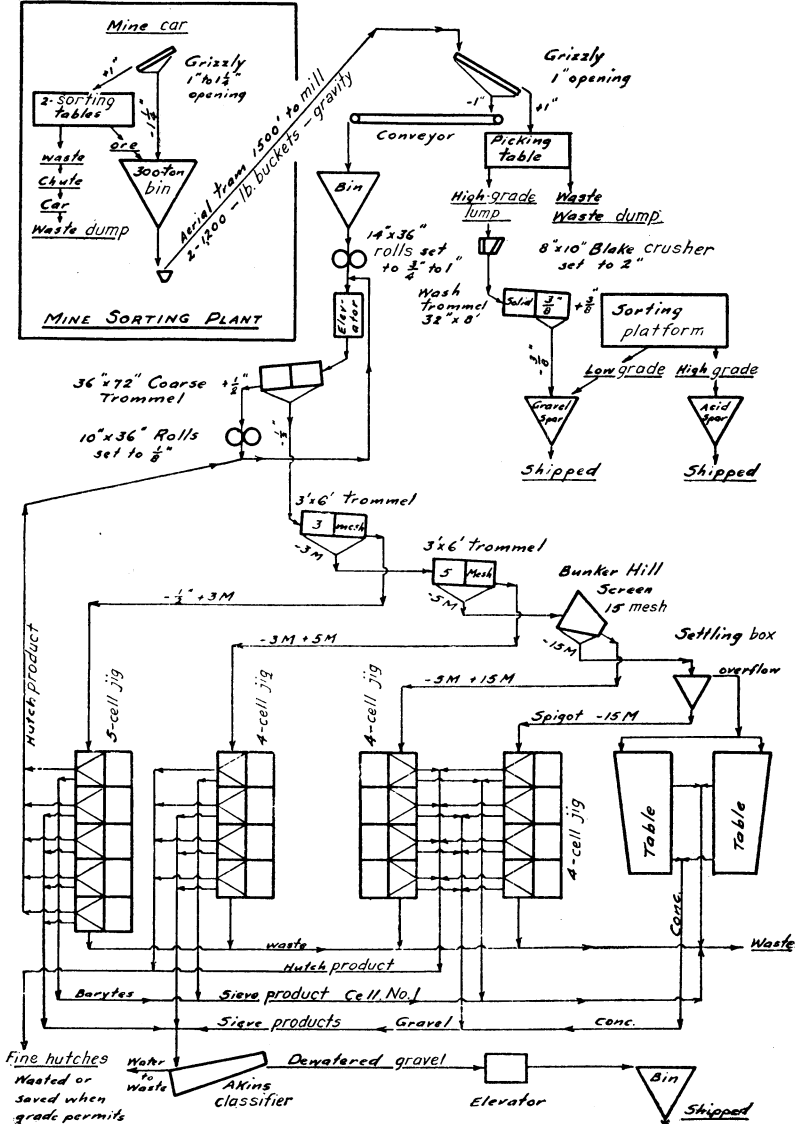 Mine car
+1"
Grizzly
1" to 1 1/4"
opening
2-sorting
tables
-1 1/4"
ore
waste
Chute
Car
Waste dump
300-ton
bin
MINE SORTING PLANT
Aerial tram 1500' to mill
2-1,200-lb. buckets - gravity
Grizzly
1" opening
-1"
+1"
Conveyor
Picking
table
Bin
High-grade
lump
Waste
Waste dump
14"x36"
rolls set
to 3/4 to 1"
8"x10" Blake crusher
set to 2"
Elev-
ator
Wash
Trommel
32"x8'
Solid
3/8"
+3/8"
-3/8"
Sorting
platform
Low grade
High grade
Gravel
Spar
Acid
Spar
Shipped
Shipped
36"x72" Coarse
Trommel
+1/2"
-1/2"
10"x36" Rolls
set to 1/8"
3'x6' Trommel
3
mesh
-3M
3'x6' Trommel
5
Mesh
-5M
Bunker Hill
Screen
15 mesh
-15M
-1/2" + 3M
-3M + 5M
-5M + 15M
Settling box
overflow
Spigot -15M
Hutch product
5-cell jig
4-cell jig
4-cell jig
4-cell jig
Table
Table
Conc.
waste
Waste
Hutch product
Barytes
Sieve product Cell No. 1
Sieve products
Gravel
Conc.
Fine hutches
Wasted or
saved when
grade permits
Water
to
Waste
Akins
classifier
Dewatered gravel
Elevator
Bin
Shipped